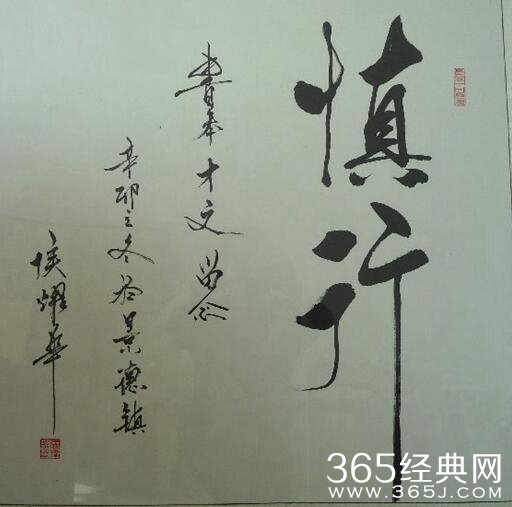 慎行
書奉才文留念
辛卯之冬於景德鎮
侯耀華
365经典网
WWW.365J.COM